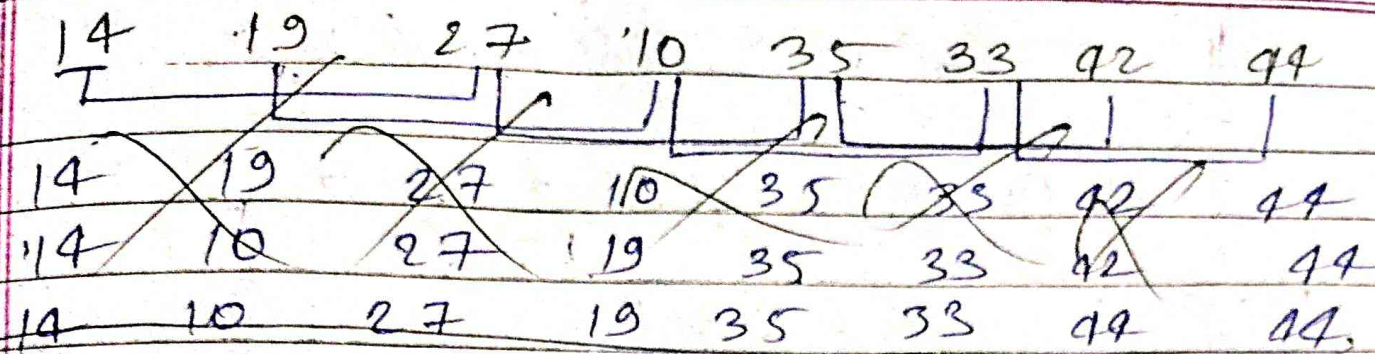 14 19 27 10 35 33 42 44
14 19 27 10 35 33 42 44
14 10 27 19 35 33 42 44
14 10 27 19 35 33 44 44